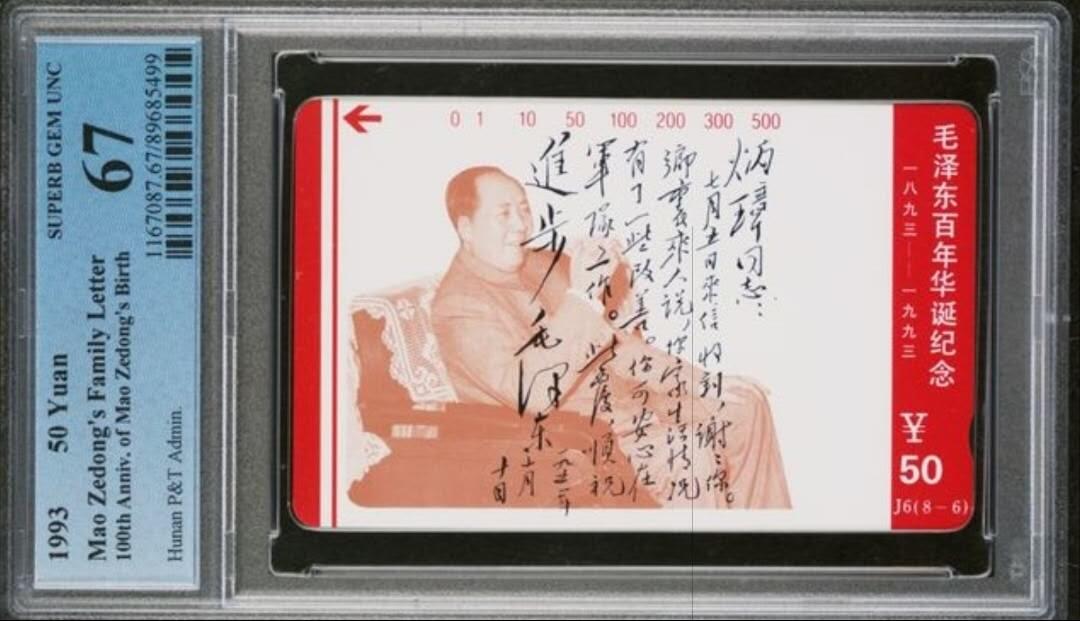 SUPERB GEM UNC
67
1167087.67/89685499
1993 50 Yuan
Mao Zedong's Family Letter
100th Anniv. of Mao Zedong's Birth
Hunan P&T Admin.
0 1 10 50 100 200 300 500
炳璋同志：
七月五日來信收到，謝謝你。
鄉里來人说，你家生活情况
有了一些改善。你可安心在
軍隊工作。此復，順祝
進步
毛泽东
十日
毛泽东百年华诞纪念
一八九三—一九九三
¥
50
J6(8-6)